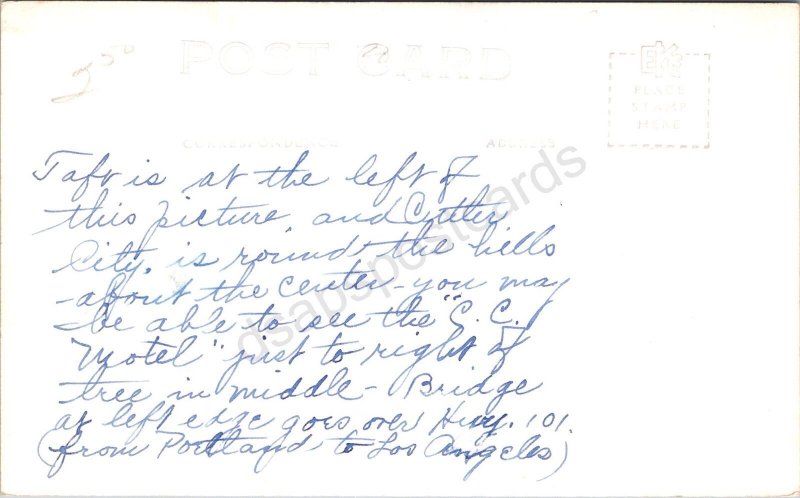 2.50
POST CARD
EKC
PLACE
STAMP
HERE
CORRESPONDENCE ADDRESS
Taft is at the left of
this picture, and Cutler
City, is round the hills
-about the center - you may
be able to see the "C.C.
Motel" just to right of
tree in middle - Bridge
at left edge goes over Hwy. 101.
(from Portland to Los Angeles)
dsapspostcards